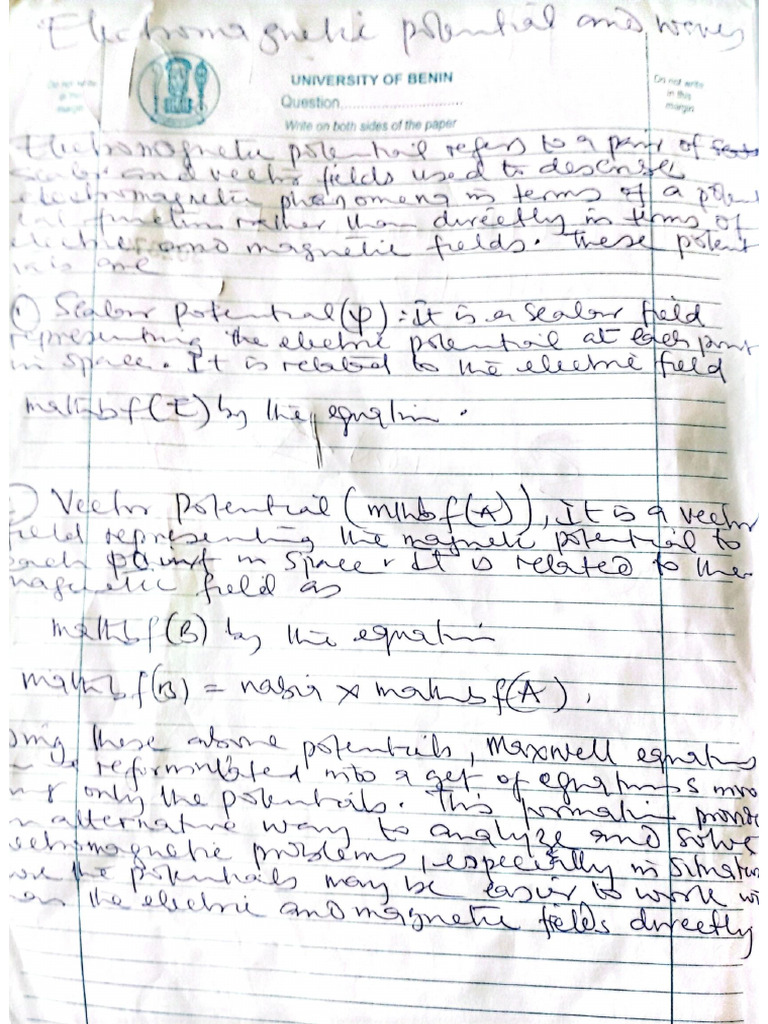 Electromagnetic potential and waves
Do not write
in this
margin
UNIVERSITY OF BENIN
Question
Write on both sides of the paper
Do not write
in this
margin
Electromagnetic potential refers to a pair of
Scalar and vector fields used to describe
electromagnetic phenomena in terms of a poten
tial function rather than directly in terms of
electric and magnetic fields. These potent
ials are
① Scalar potential (φ): It is a scalar field
representing the electric potential at each point
in space. It is related to the electric field
mathbf(E) by the equation.
Vector Potential (mthbf(A)), It is a vector
field representing the magnetic potential to
each point in space. It is related to the
magnetic field as
mathbf(B) by the equation
mathbf(B) = nabla x mathbf(A),
sing these above potentials, Maxwell equations
reformulated into a set of equations invo
only the potentials. This formation provide
an alternative way to analyze and solve
ectromagnetic problems, especially in situation
the potentials may be easier to work wi
an the electric and magnetic fields directly